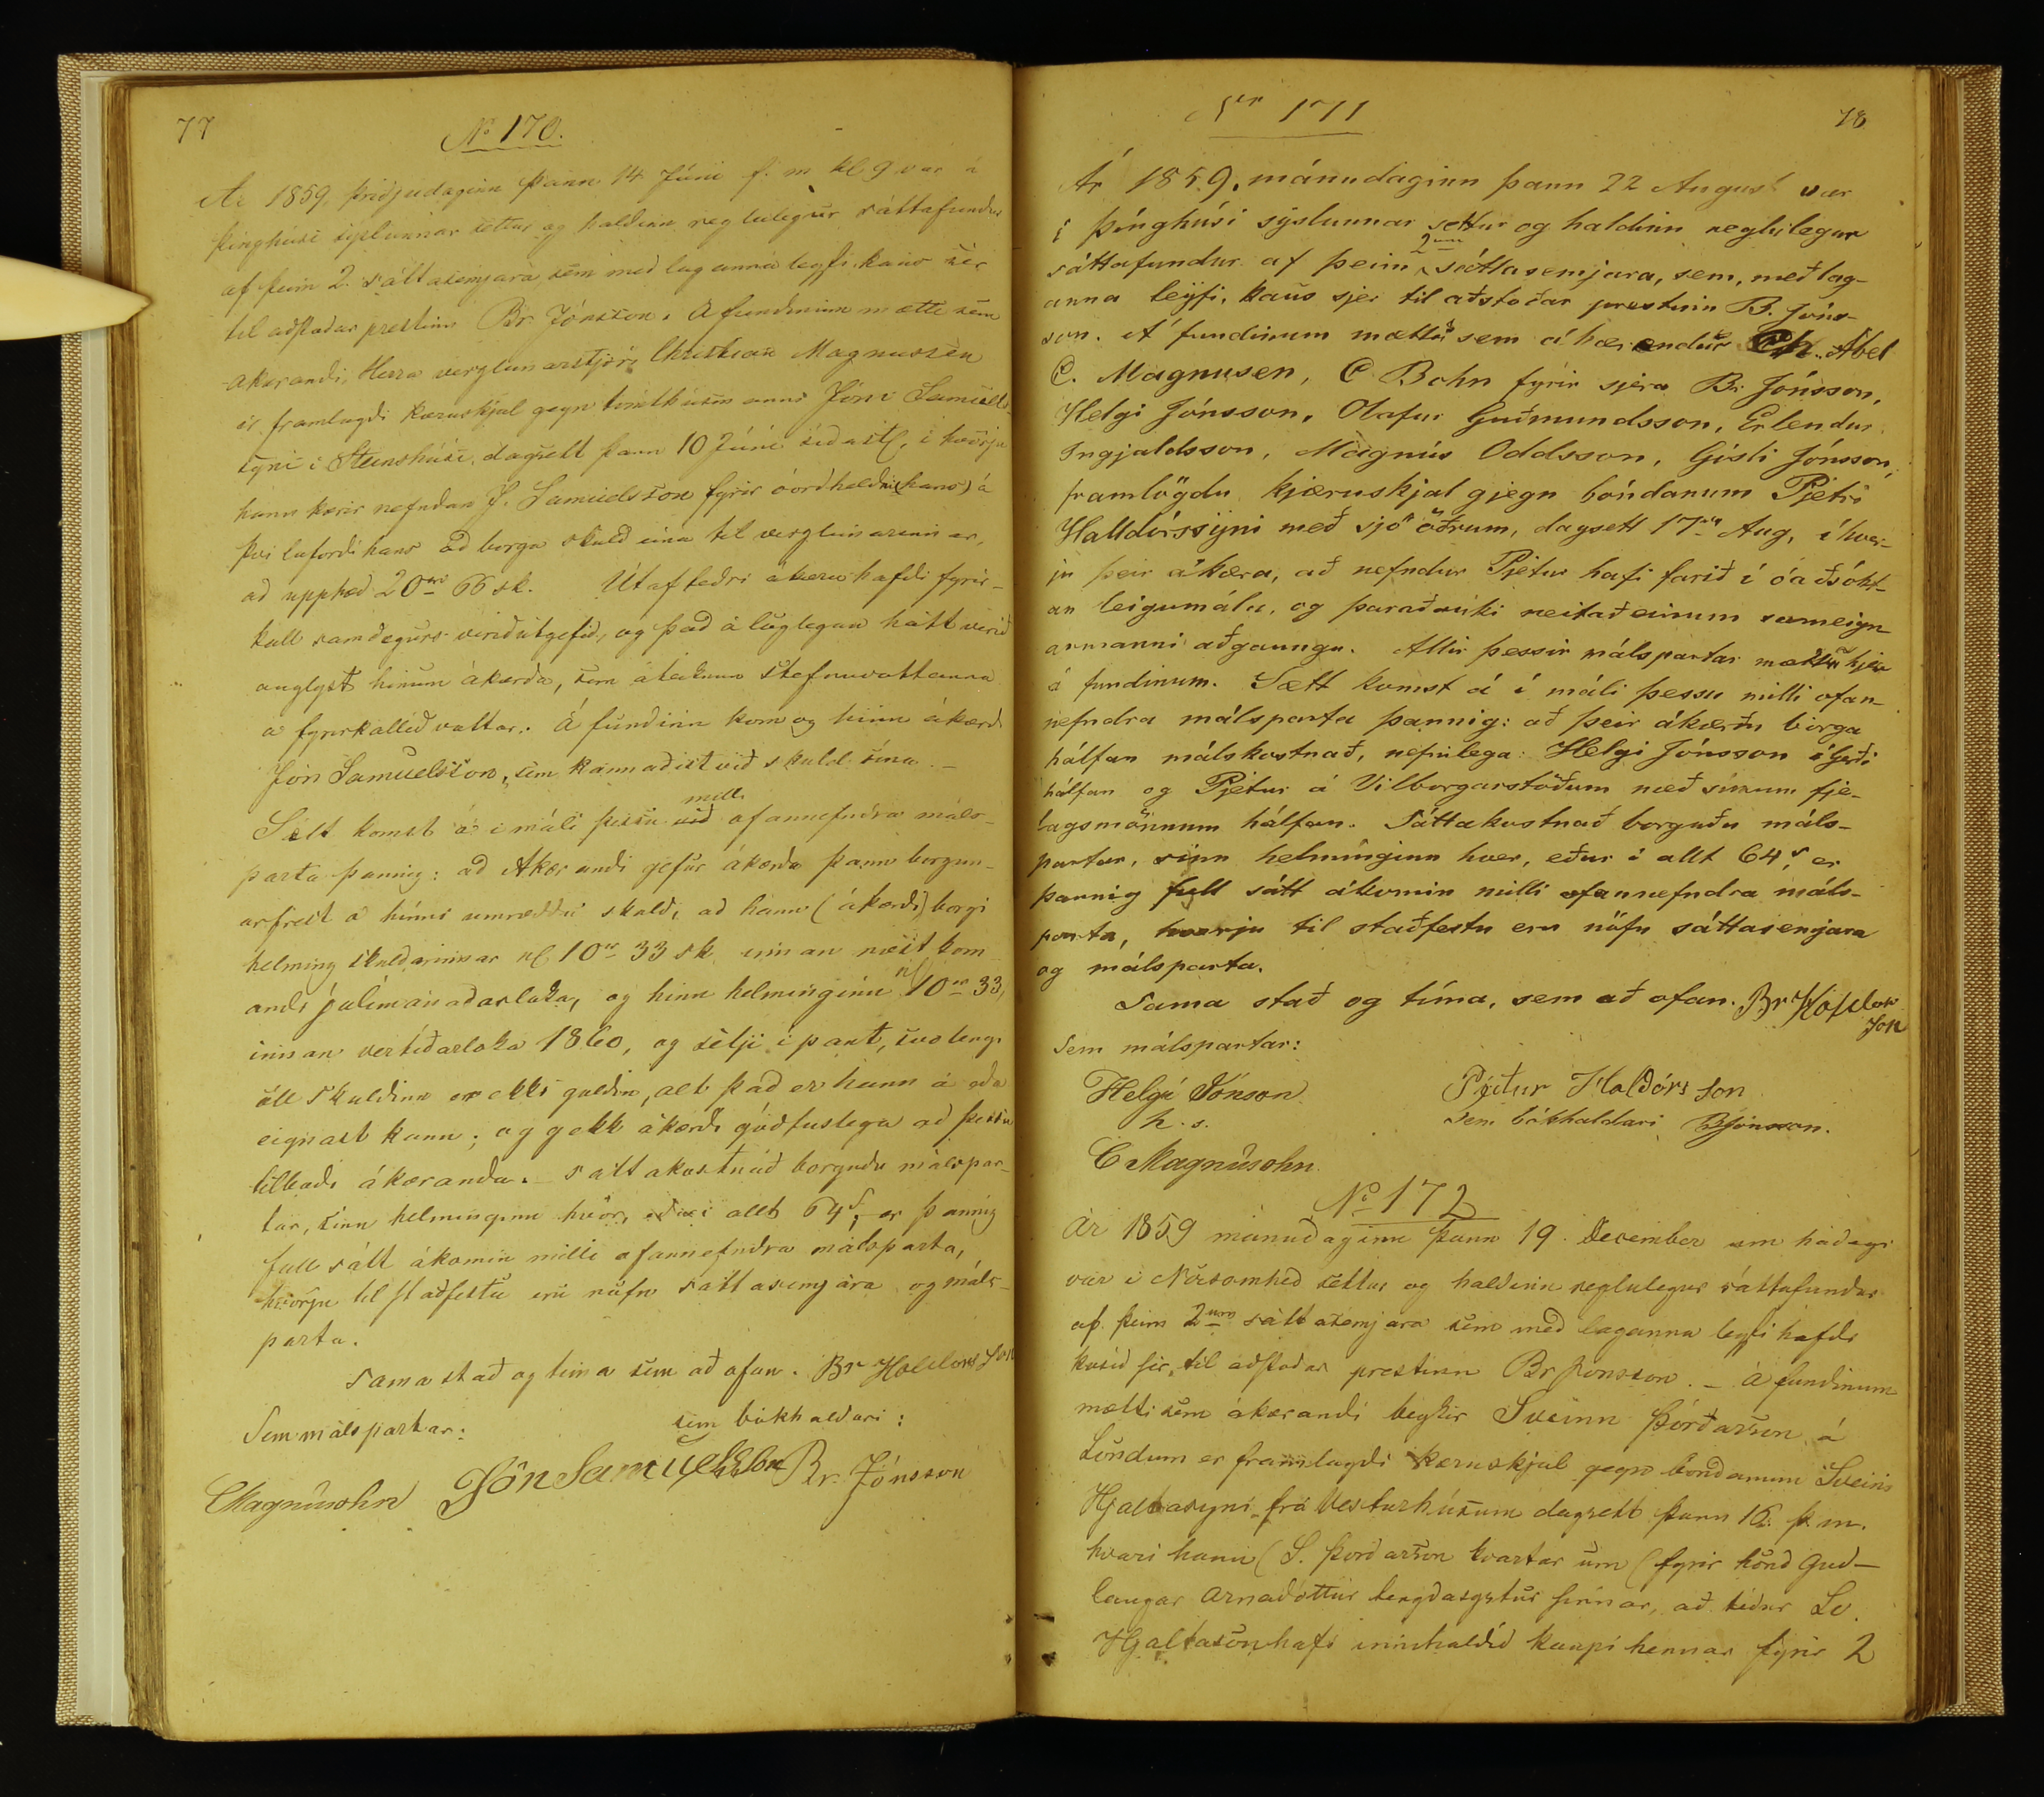 77
No 170.
Ár 1859 þriðjudaginn þann 14 Júni f. m kl 9 var í
þinghúsi sýslunnar settur og haldinn reglulegur sáttafundur
af þeim 2. sáttasemjara, sem með laganna leyfi kaus sér
til aðstoðar prestinn Br Jónsson. Á fundinum mætti sem
ákærandi, Herra verzlunarstjóri Christian Magnussen
er framlagði kæruskjal gegn tomthúsmanni Jóni Samúels-
syni í Steinshúsi, dagsett þann 10 Júní síðastl, í hvörju
hann kærir nefndan J. Samuelsson fyrir óorðheldni (hans) á
því loforði hans að borga skuld sína til verzlunarinnar,
að upphæð 20 rd 66 sk. Útaf téðri ákæru hafði fyrir-
kall samdægurs verið útgefið, og það á löglegan hátt verið
auglýst hinum ákærða, sem áteiknun stefnuvottanna
á fyrirkallið vottar. Á fundinn kom og hinn ákærði
Jón Samuelsson, sem kannaðist við skuld sína. -
Sætt komst á í máli þessu við milli ofannefndra máls-
parta þannig: að Ákærandi gefur ákærða þann borgun-
arfrest á hinni umræddu skuld, að hann (ákærði) borgi
helming skuldarinnar nl 10 rd 33 sk innan næst kom-
andi júlímánaðarloka, og hinn helminginn nl 10 rd 33,
innan vertíðarloka 1860, og setji í pant, svo lengi
öll skuldinn er ekki goldin, alt það er hann á eða
eignast kann; og gekk ákærði góðfúslega að þessu
tilboði ákæranda. - Sáttakostnað borguðu málspar-
tar, sinn helminginn hvör, eður í allt 64 s, er þannig
full sátt ákomin milli ofannefndra málsparta,
hvörju til staðfestu eru nöfn sáttasemjara og máls-
parta.
Sama stað og tíma sem að ofan. Br Holldors Son
Sem málspartar: sem bókhaldari:
CMagnúsohn Jón Samuelsson Br. Jónsson
Nr 171
78
Ár 1859, mánudaginn þann 22 August var
í þínghúsi sýslunnar settur og haldinn reglulegur
sáttafundur af þeim 2um sáttasemjara, sem, með lag-
anna leyfi, kaus sjer til aðstoðar prestinn B. Jóns-
son. Á fundinum mættu sem ákærendur Ch. Abel
C. Magnusen, C Bohn fyrir sjera Br. Jónsson,
Helgi Jónsson, Olafur Guðmundsson, Erlendur
Ingjaldsson, Magnús Oddsson, Gísli Jónsson,
framlögdu kjæruskjal gjegn bóndanum Pjetri
Halldórssyni með sjö öðrum, dagsett 17da Aug, í hver-
ju þeir ákæra, að nefndur Pjetur hafi farið í óaðsókt-
an leigumála, og þaraðauki neitað einum sameign
armanni aðgaungu. Allir þessir málspartar mættu hjer
á fundinum. Sætt komst á í máli þessu milli ofan-
nefndra málsparta þannig: að þeir ákærðu borga
hálfan málskostnað, nefnilega: Helgi Jónsson í Gerði
hálfan og Pjetur á Vilborgarstöðum með sínum fje-
lagsmönnum hálfan. Sáttakostnað borguðu máls-
partar, sinn helmínginn hver, eður í allt 64 s, er
þannig full sátt ákomin milli ofannefndra máls-
parta, hverju til staðfestu eru nöfn sáttasemjara
og málsparta.
Sama stað og tíma, sem að ofan. Br Holdor
son
Sem málspartar:
Helgi Jónson Pjetur Haldórs son
h. s. Sem bókhaldari BJónsson.
C Magnúsohn.
No 172
Ár 1859 mánudaginn þann 19. December um hádegi
var í Nöisomhed settur og haldinn reglulegur sáttafundur
af þeim 2um sáttasemjara sem með laganna leyfi hafði
kosið sér til aðstoðar prestinn Br Jónsson. - Á fundinum
mætti sem ákærandi beykir Sveinn Þórðarson á
Löndum er framlagði kæruskjal gegn bóndanum Sveini
Hjaltasyni frá Vesturhúsum dagsett þann 16. þ. m.
hvari hann (S. Þordarson kvartar um (fyrir hönd Guð-
laugar Arnadóttur tengdasystur sinnar, að téður Sv.
Hjaltason hafi inníhaldið kaupi hennar fyrir 2